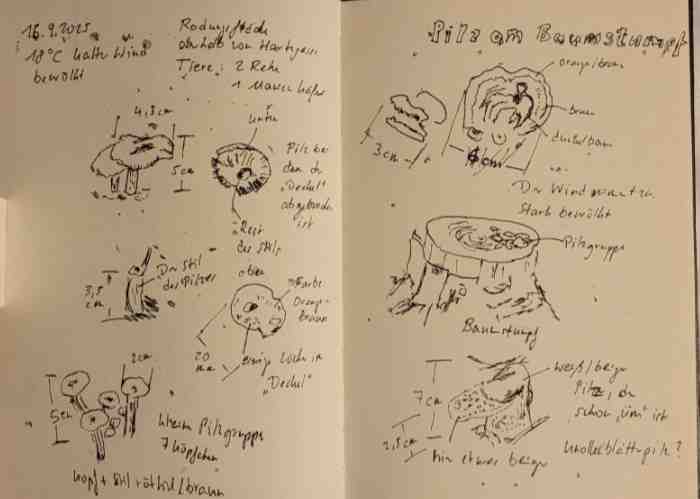 16.9.2025
18°C kalter Wind
bewölkt
Rodungsfläche
oberhalb von
Tiere: 2 Rehe
1 Marienkäfer
4,3cm
5cm
unten
Pilz bei
dem der
„Deckel"
abgebrochen
ist
Rest
des Stils
3,5
cm
Der Stil
des Pilzes
oben
Farbe
Orange-
Braun
20
mm
einige Löcher im
„Deckel"
2cm
5cm
kleine Pilzgruppe
7 Köpfchen
Kopf + Stil rötlich/braun
Pilz am Baumstumpf
orangebraun
braun
dunkelbraun
3cm
6cm
Der Wind
Stark bewölkt
Pilzgruppe
Baumstumpf
7
cm
2,5cm
weiß/beige
Pilz, der
schon „um" ist
Knollenblätterpilz?
hier etwas beige